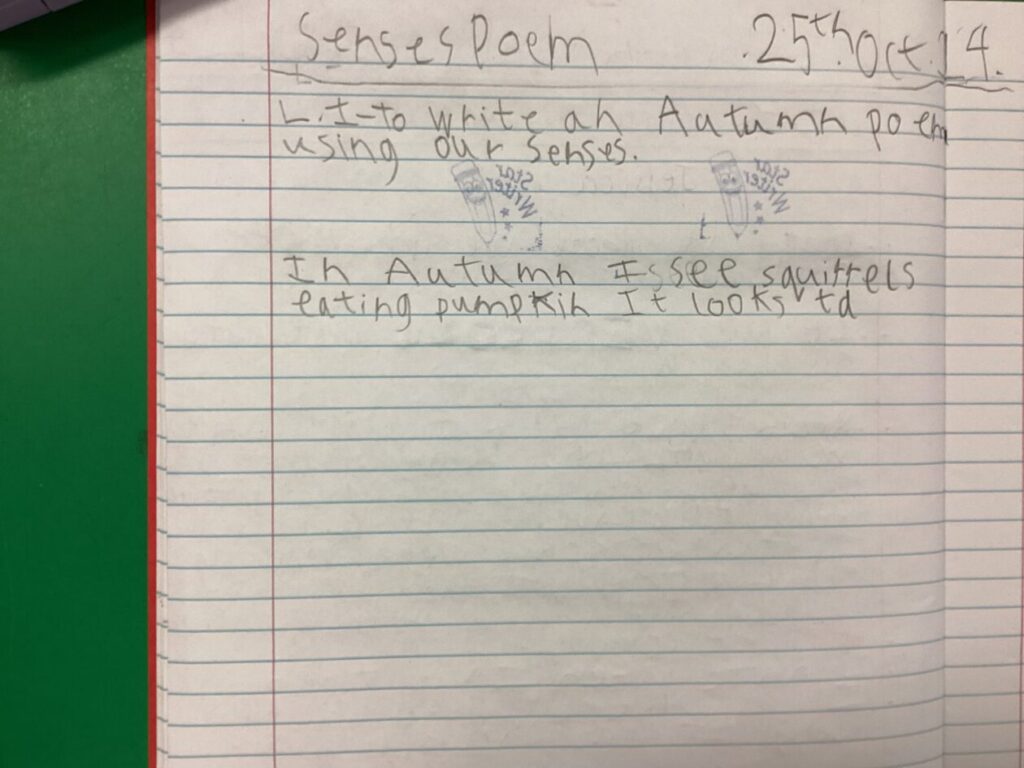 Senses Poem 25th Oct.14.
L.I-to write an Autumn poem
using our senses.
Star Writer
Star Writer
t
In Autumn I see squirrels
eating pumpkin It looks